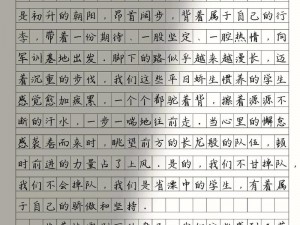 是初升的朝阳，昂首阔步，背着属于自己的行
李，带着一份期待，一股坚定，一腔热情，向
军训基地出发，脚下的路似乎越来越漫长，迈
着沉重的步伐，我们这些平日娇生惯养的学生
感觉愈加疲累，一个个都驼着背，擦着源源不
断的汗水，一步一喘地往前走。当心里的懈怠
感袭卷而来时，眺望前方的长龙般的队伍，顿
时前进的力量占了上风。是的，我们不甘掉队，
我们不会掉队，我们是省溧中的学生，有着属
于自己的骄傲和坚持。